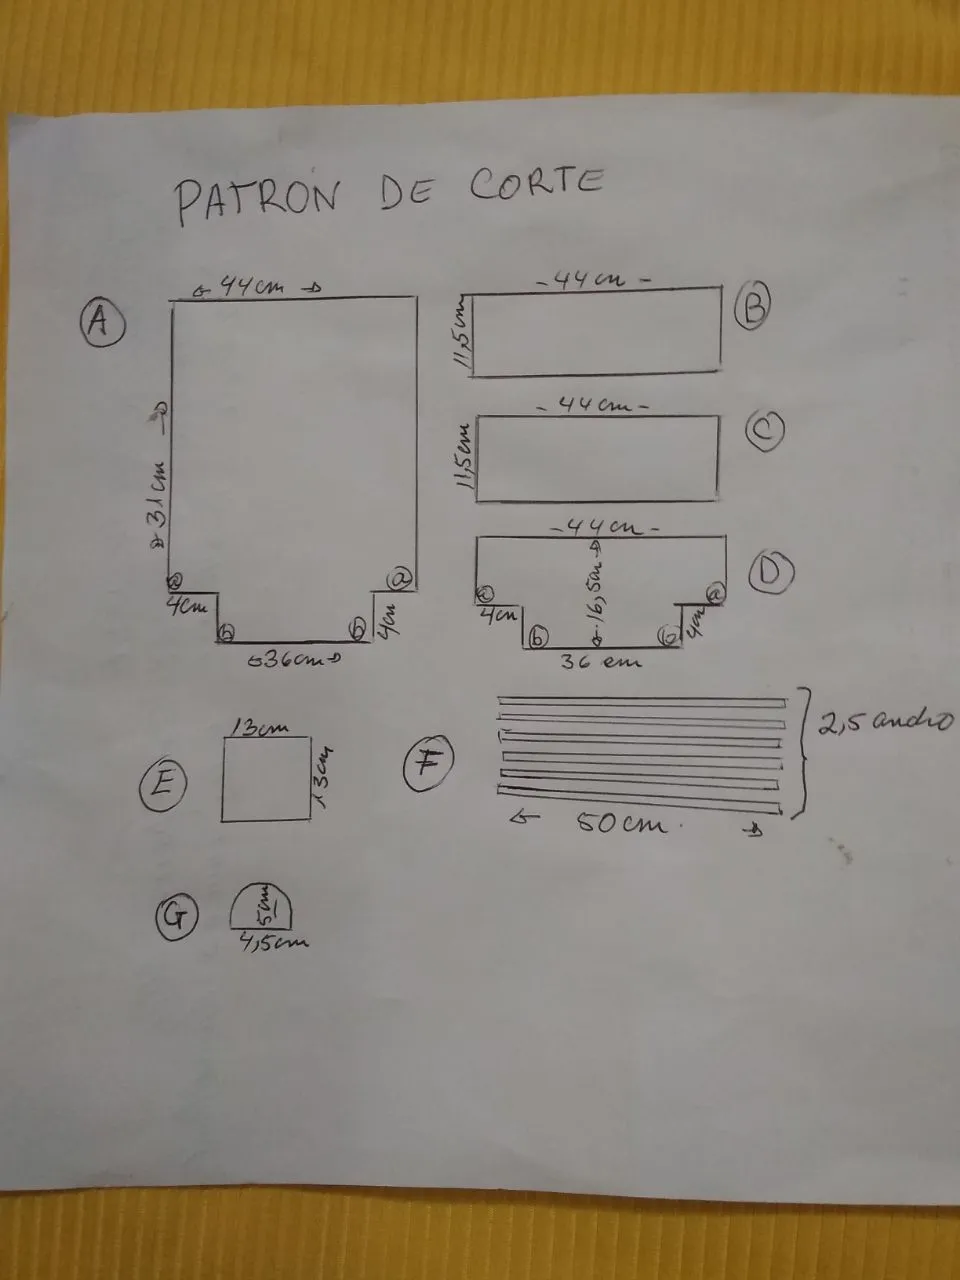 PATRON DE CORTE
A
44cm
31cm
a
a
4cm
4cm
b
b
36cm
B
-44cm-
11,5cm
C
-44cm-
11,5cm
D
-44cm-
16,5cm
a
a
4cm
4cm
b
b
36 cm
E
13cm
13cm
F
2,5 ancho
50cm.
G
5cm
4,5cm